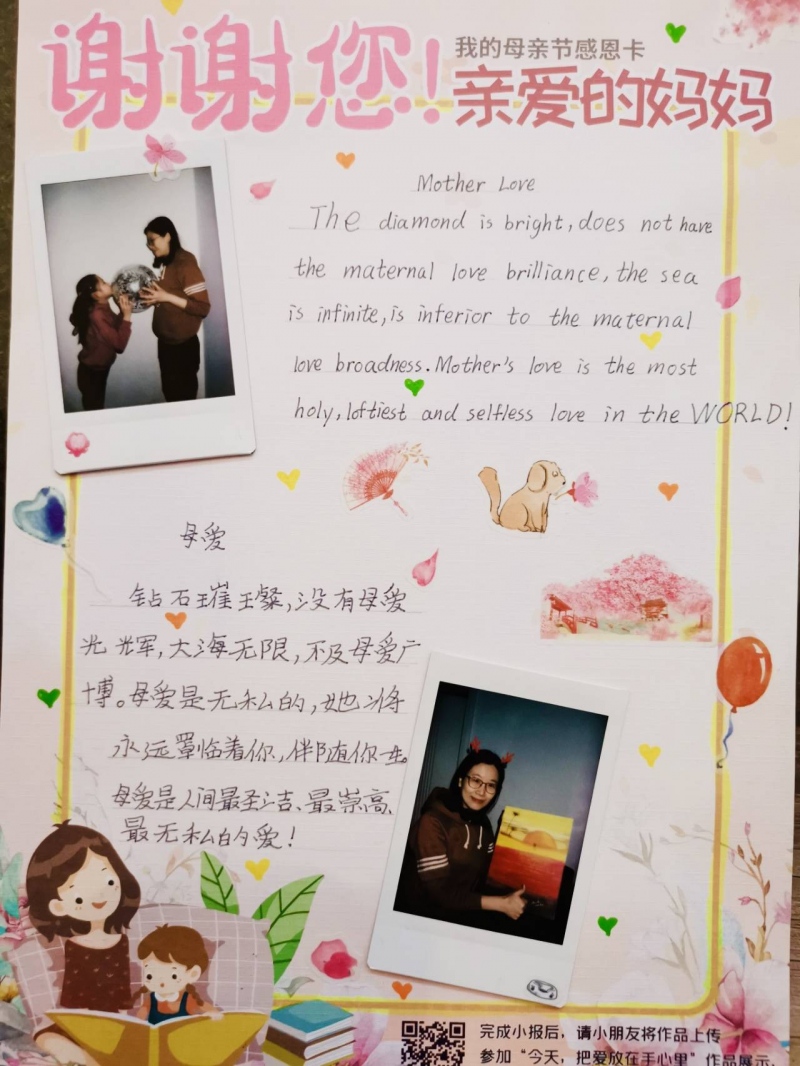 谢谢您!
我的母亲节感恩卡
亲爱的妈妈
Mother Love
The diamond is bright, does not have
the maternal love brilliance, the sea
is infinite, is inferior to the maternal
love broadness. Mother's love is the most
holy, loftiest and selfless love in the WORLD!
母爱
钻石璀王粲,没有母爱
光光辉,大海无限,不及母爱广
博。母爱是无私的,她将
永远罩临着你,伴随你一生。
母爱是人间最圣洁、最崇高、
最无私的爱!
完成小报后,请小朋友将作品上传
参加“今天,把爱放在手心里”作品展示,